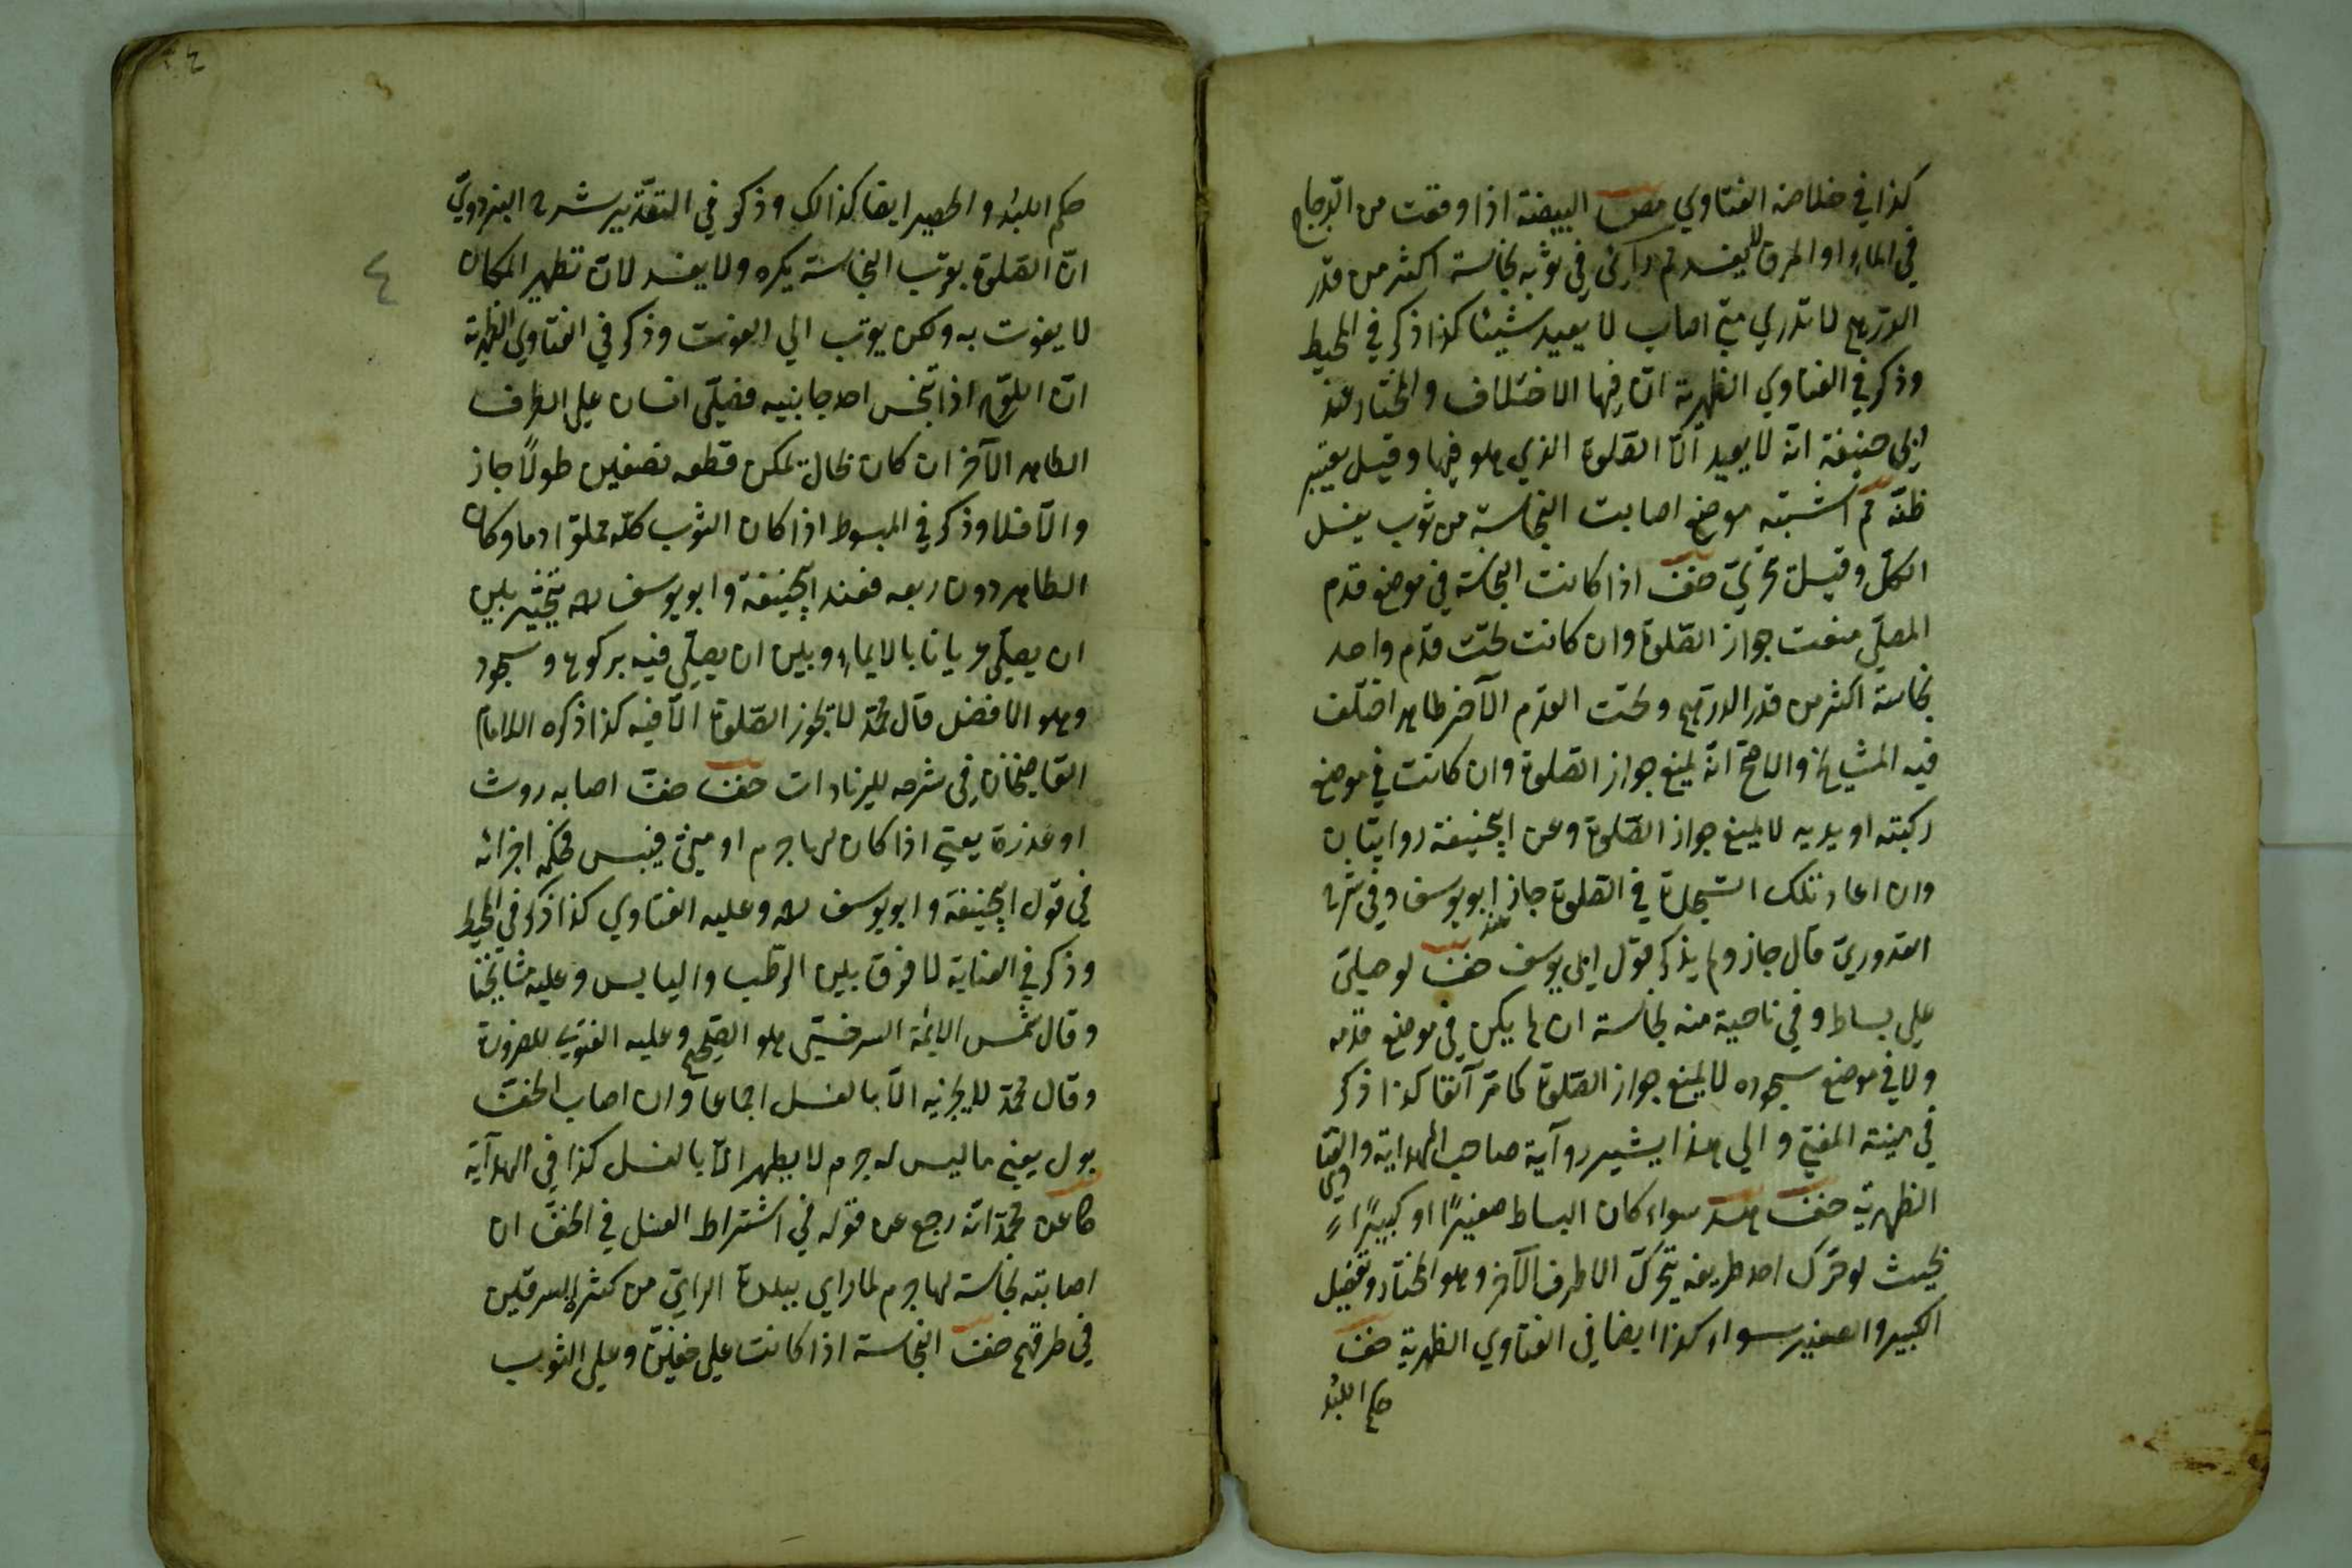 كذا في خلاصة الفتاوي مص البيضة اذا وقعت من الدّجاج
في الماء او المرق لا يفسد ثم رأى في ثوبه نجاسة اكثر من قدر
الدرهم لا تدري متى اصاب لا يعيد شيئا كذا ذكر في المحيط
وذكر في الفتاوي الظهرية انّ فيها الاختلاف والمختار عند
ابي حنيفة انّه لا يعيد الّا الصّلوة الذي هو فيها وقيل يعتبر
ظنّه ثم اشتبه موضع اصابت النجاسة من ثوب يغسل
الكلّ وقيل تحرّيّ حفت اذا كانت النجاسة في موضع قدم
المصلّي منعت جواز الصّلوة وان كانت تحت قدم واحد
نجاسة اكثر من قدر الدرهم وتحت القدم الآخر طاهر اختلف
فيه المشايخ والاصحّ انّه يمنع جواز الصلوة وان كانت في موضع
ركبته او يديه لا يمنع جواز الصّلوة وعن ابيحنيفة روايتان
وان اعاد تلك السّجدة في الصّلوة جاز عند ابو يوسف وفي شرح
القدوريّ قال جاز ولم يذكر قول ابي يوسف حفت لو صلّى
على بساط وفي ناحية منه نجاسة ان لم يكن في موضع قدمه
ولا في موضع سجوده لا يمنع جواز الصّلوة كما مرّ آنفا كذا ذكر
في منية المفتي والى هذا يشير روآية صاحب الهداية والفتاوي
الظهريّة حفت سواء كان البساط صغيرًا او كبيرًا
بحيث لو حرّك احد طريفه يتحرّك الاطرف الآخر وهو المختار وتفصيل
الكبير والصغير سواء كذا ايضا في الفتاوي الظهرية حفت
حكم اللبد
حكم اللبد والحصير ايضا كذالك وذكر في التقدير شرح البزدويّ
انّ الصّلوة بقرب النجاسة يكره ولا يفسد لانّ تطهير المكان
لا يفوت به ولكن يوتب الي الفوت وذكر في الفتاوي الظهرية
انّ اللوح اذا تنجّس احد جانبيه فصلّى انسان على الطرف
الطاهر الآخر ان كان بحال يمكن قطعه نصفين طولًا جاز
والّا فلا وذكر في المبسوط اذا كان الثوب كلّه مملوّا دما وكان
الطاهر دون ربعه فعند ابيحنيفة وابو يوسف رحـ يتخيّر بين
ان يصلّي عريانا بالايماء وبين ان يصلّي فيه بركوع وسجود
وهو الافضل قال محمّد لا تجوز الصّلوة الّا فيه كذا ذكره الامام
القاضيخان في شرحه للزيادات حفت خفّ اصابه روث
او عذرة يعني اذا كان لها جرم او منيّ فيبس فحكّه اجزائه
في قول ابيحنيفة وابو يوسف رحـ وعليه الفتاوي كذا ذكر في المحيط
وذكر في العناية لا فرق بين الرطب واليابس وعليه مشايخنا
وقال شمس الايمّة السرخسي هو الصّحيح وعليه الفتوى للضرورة
وقال محمّد لا يجزيه الّا بالغسل اجماعا وان اصاب الخفّ
بول يعني ما ليس له جرم لا يطهر الّا بالغسل كذا في الهدآية
كا عن محمّد انّه رجع عن قوله في اشتراط الغسل في الخفّ ان
اصابته نجاسة لها جرم لما راي ببلدة الرايّ من كثرة السرقين
في طرقهم حفت النجاسة اذا كانت على خفّين وعلى الثوب
٤